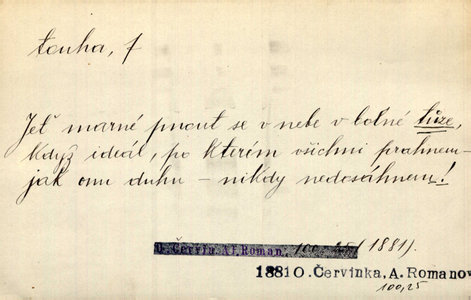 touha, f
Jeť marné pnout se v nebe v bolné tůze,
když ideál, po kterém všichni prahnem –
jak onu duhu – nikdy nedosáhnem!
O. Červin. A. Roman. 100–25 (1881).
1881 O. Červinka, A. Romanov
100,25